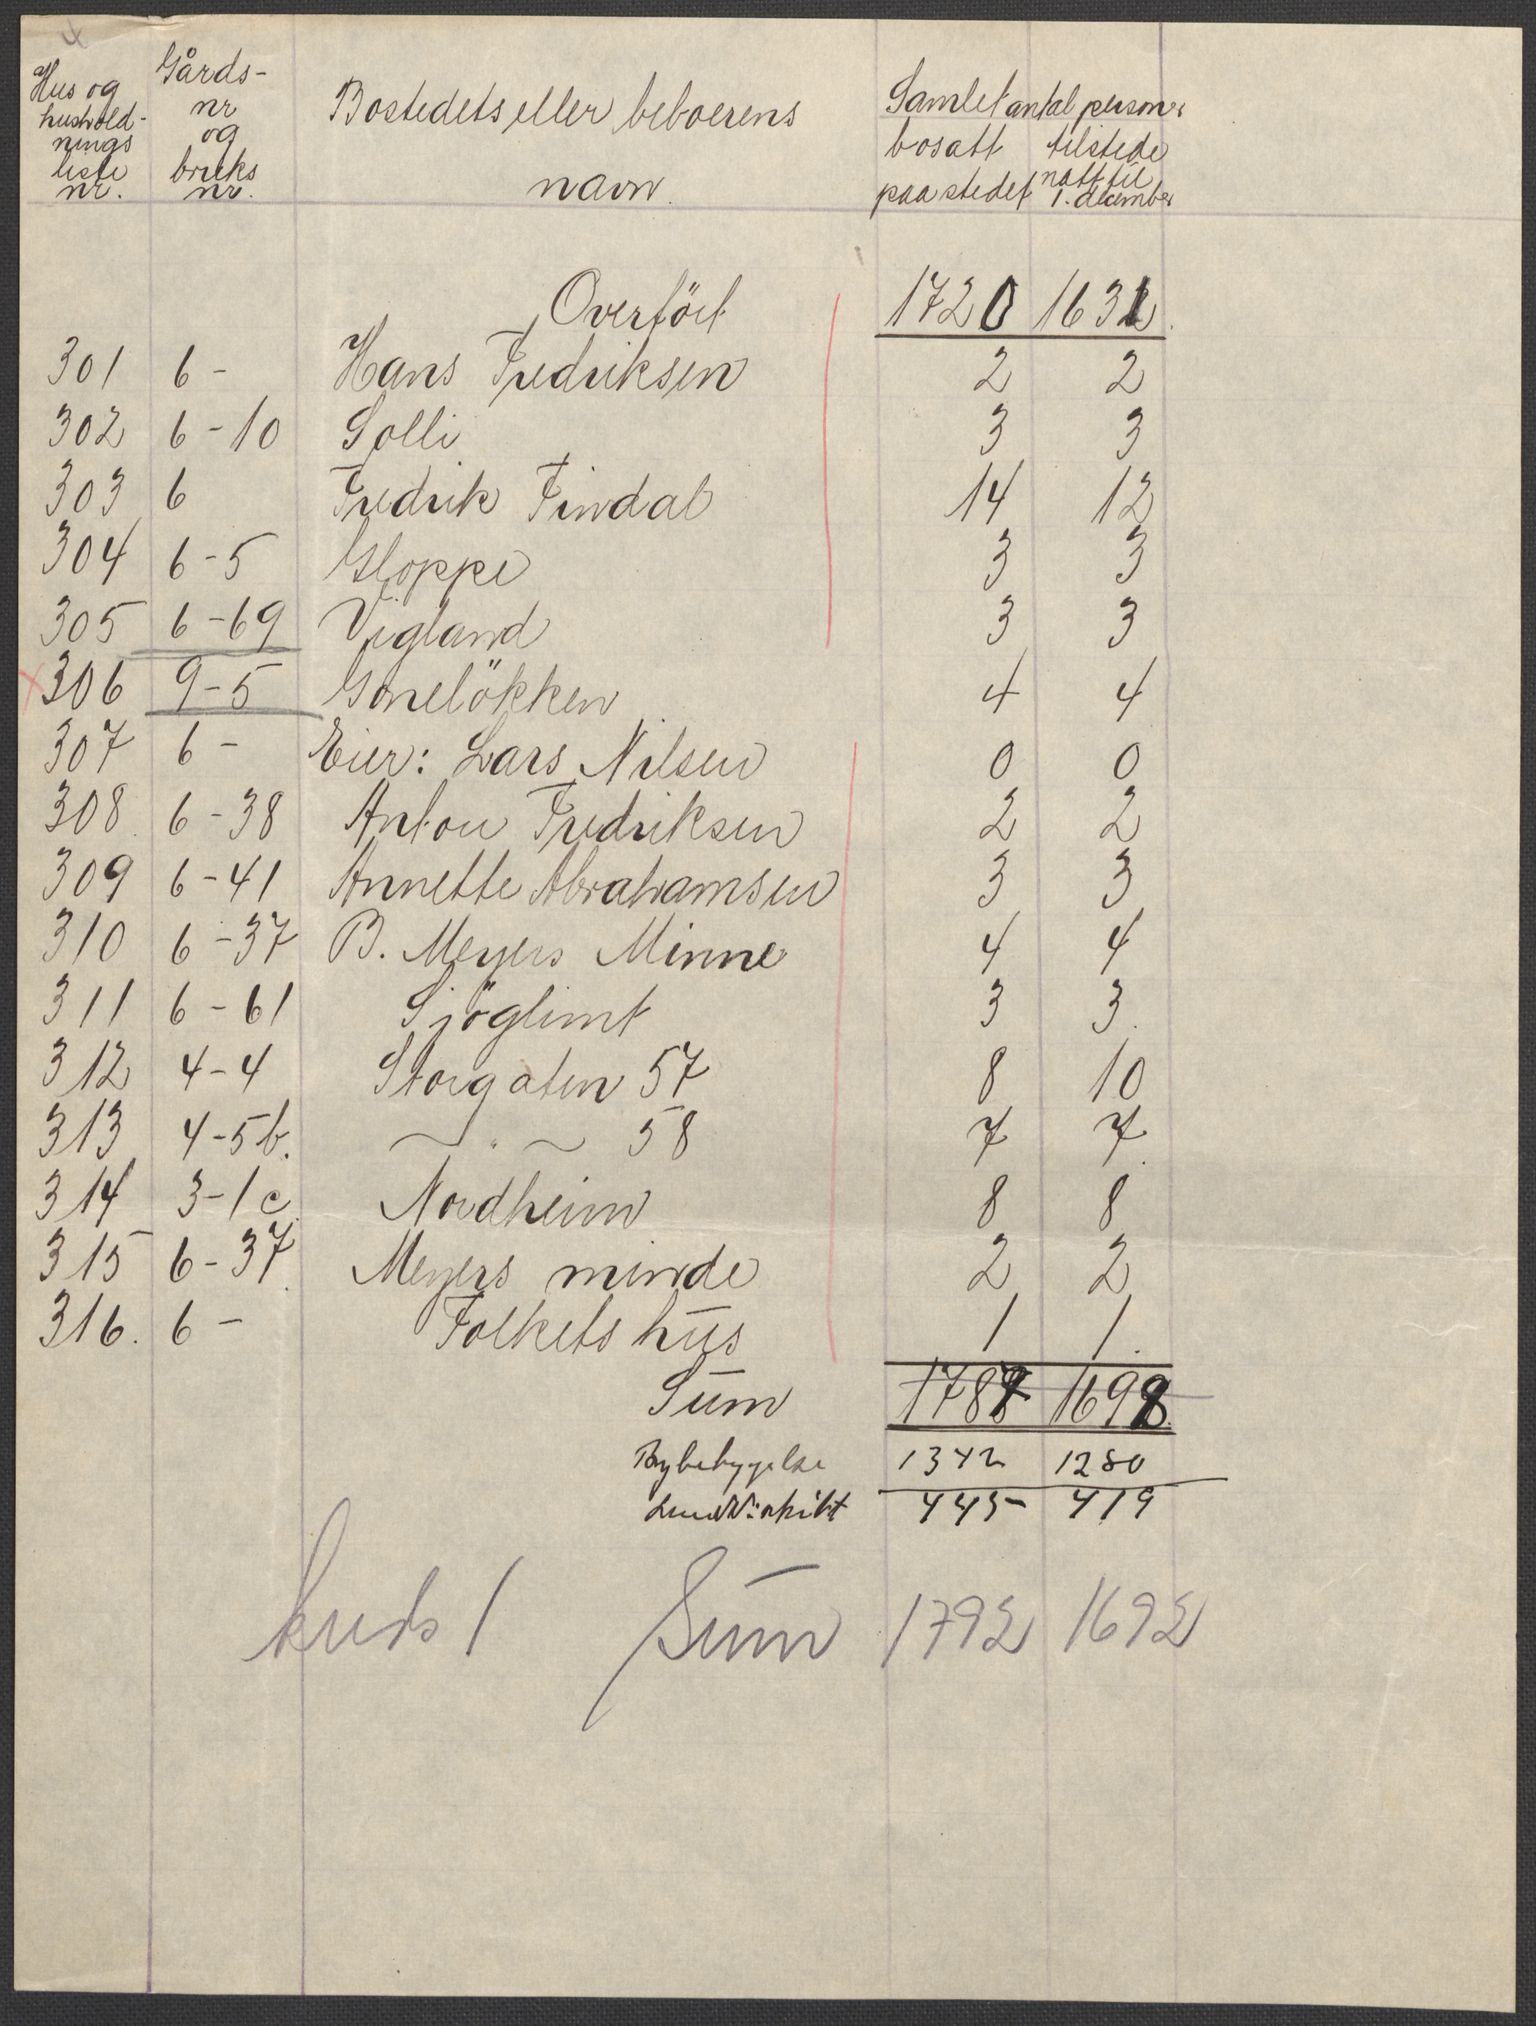 Hus og hushold- nings liste nr. | Gårds- nr og bruks nr. | Bostedets eller beboerens navn. | Samlet antal personer bosatt paa stedet | tilstede natt til 1. december
Overfört 1720 1631
301 6 - Hans Fredriksen 2 2
302 6 - 10 Solli 3 3
303 6 Fredrik Findal 14 12
304 6 - 5 Gloppe 3 3
305 6 - 69 Vigland 3 3
306 9 - 5 Gonelökken 4 4
307 6 - Eier: Lars Nilsen 0 0
308 6 - 38 Anton Fredriksen 2 2
309 6 - 41 Annette Abrahamsen 3 3
310 6 - 37 B. Meyers Minne 4 4
311 6 - 61 Sjöglimt 3 3
312 4 - 4 Storgaten 57 8 10
313 4 - 5b. — " — 58 7 7
314 3 - 1c Nordheim 8 8
315 6 - 37 Meyers minde 2 2
316. 6 - Folkets hus 1 1
Sum 1787 1698
Bybebyggelse 1342 1280
445 419
kreds 1 Sum 1792 1692